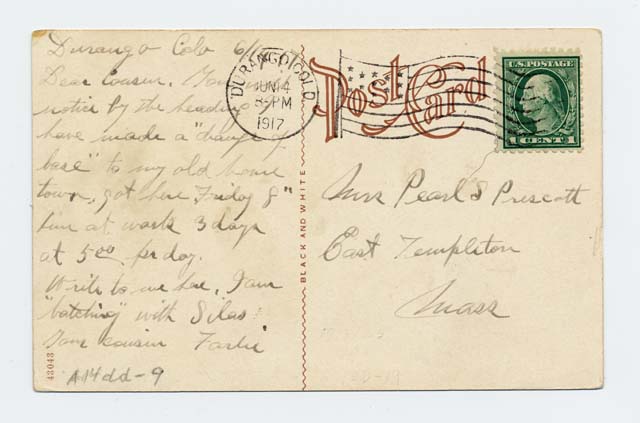 Durango Colo 6/1
Dear Cousin. You
notice by the heading
have made a "change of
base" to my old home
town, got here Friday 8"
him at work 3 days
at 5 00 per day.
Write to me here, I am
"batching" with Silas
Your cousin
A14dd-9
43043
BLACK AND WHITE
DURANGO, COLO.
JUN 14
8-PM
1917
Post Card
U.S. POSTAGE
1 CENT 1
Miss Pearl S Prescott
East Templeton
Mass